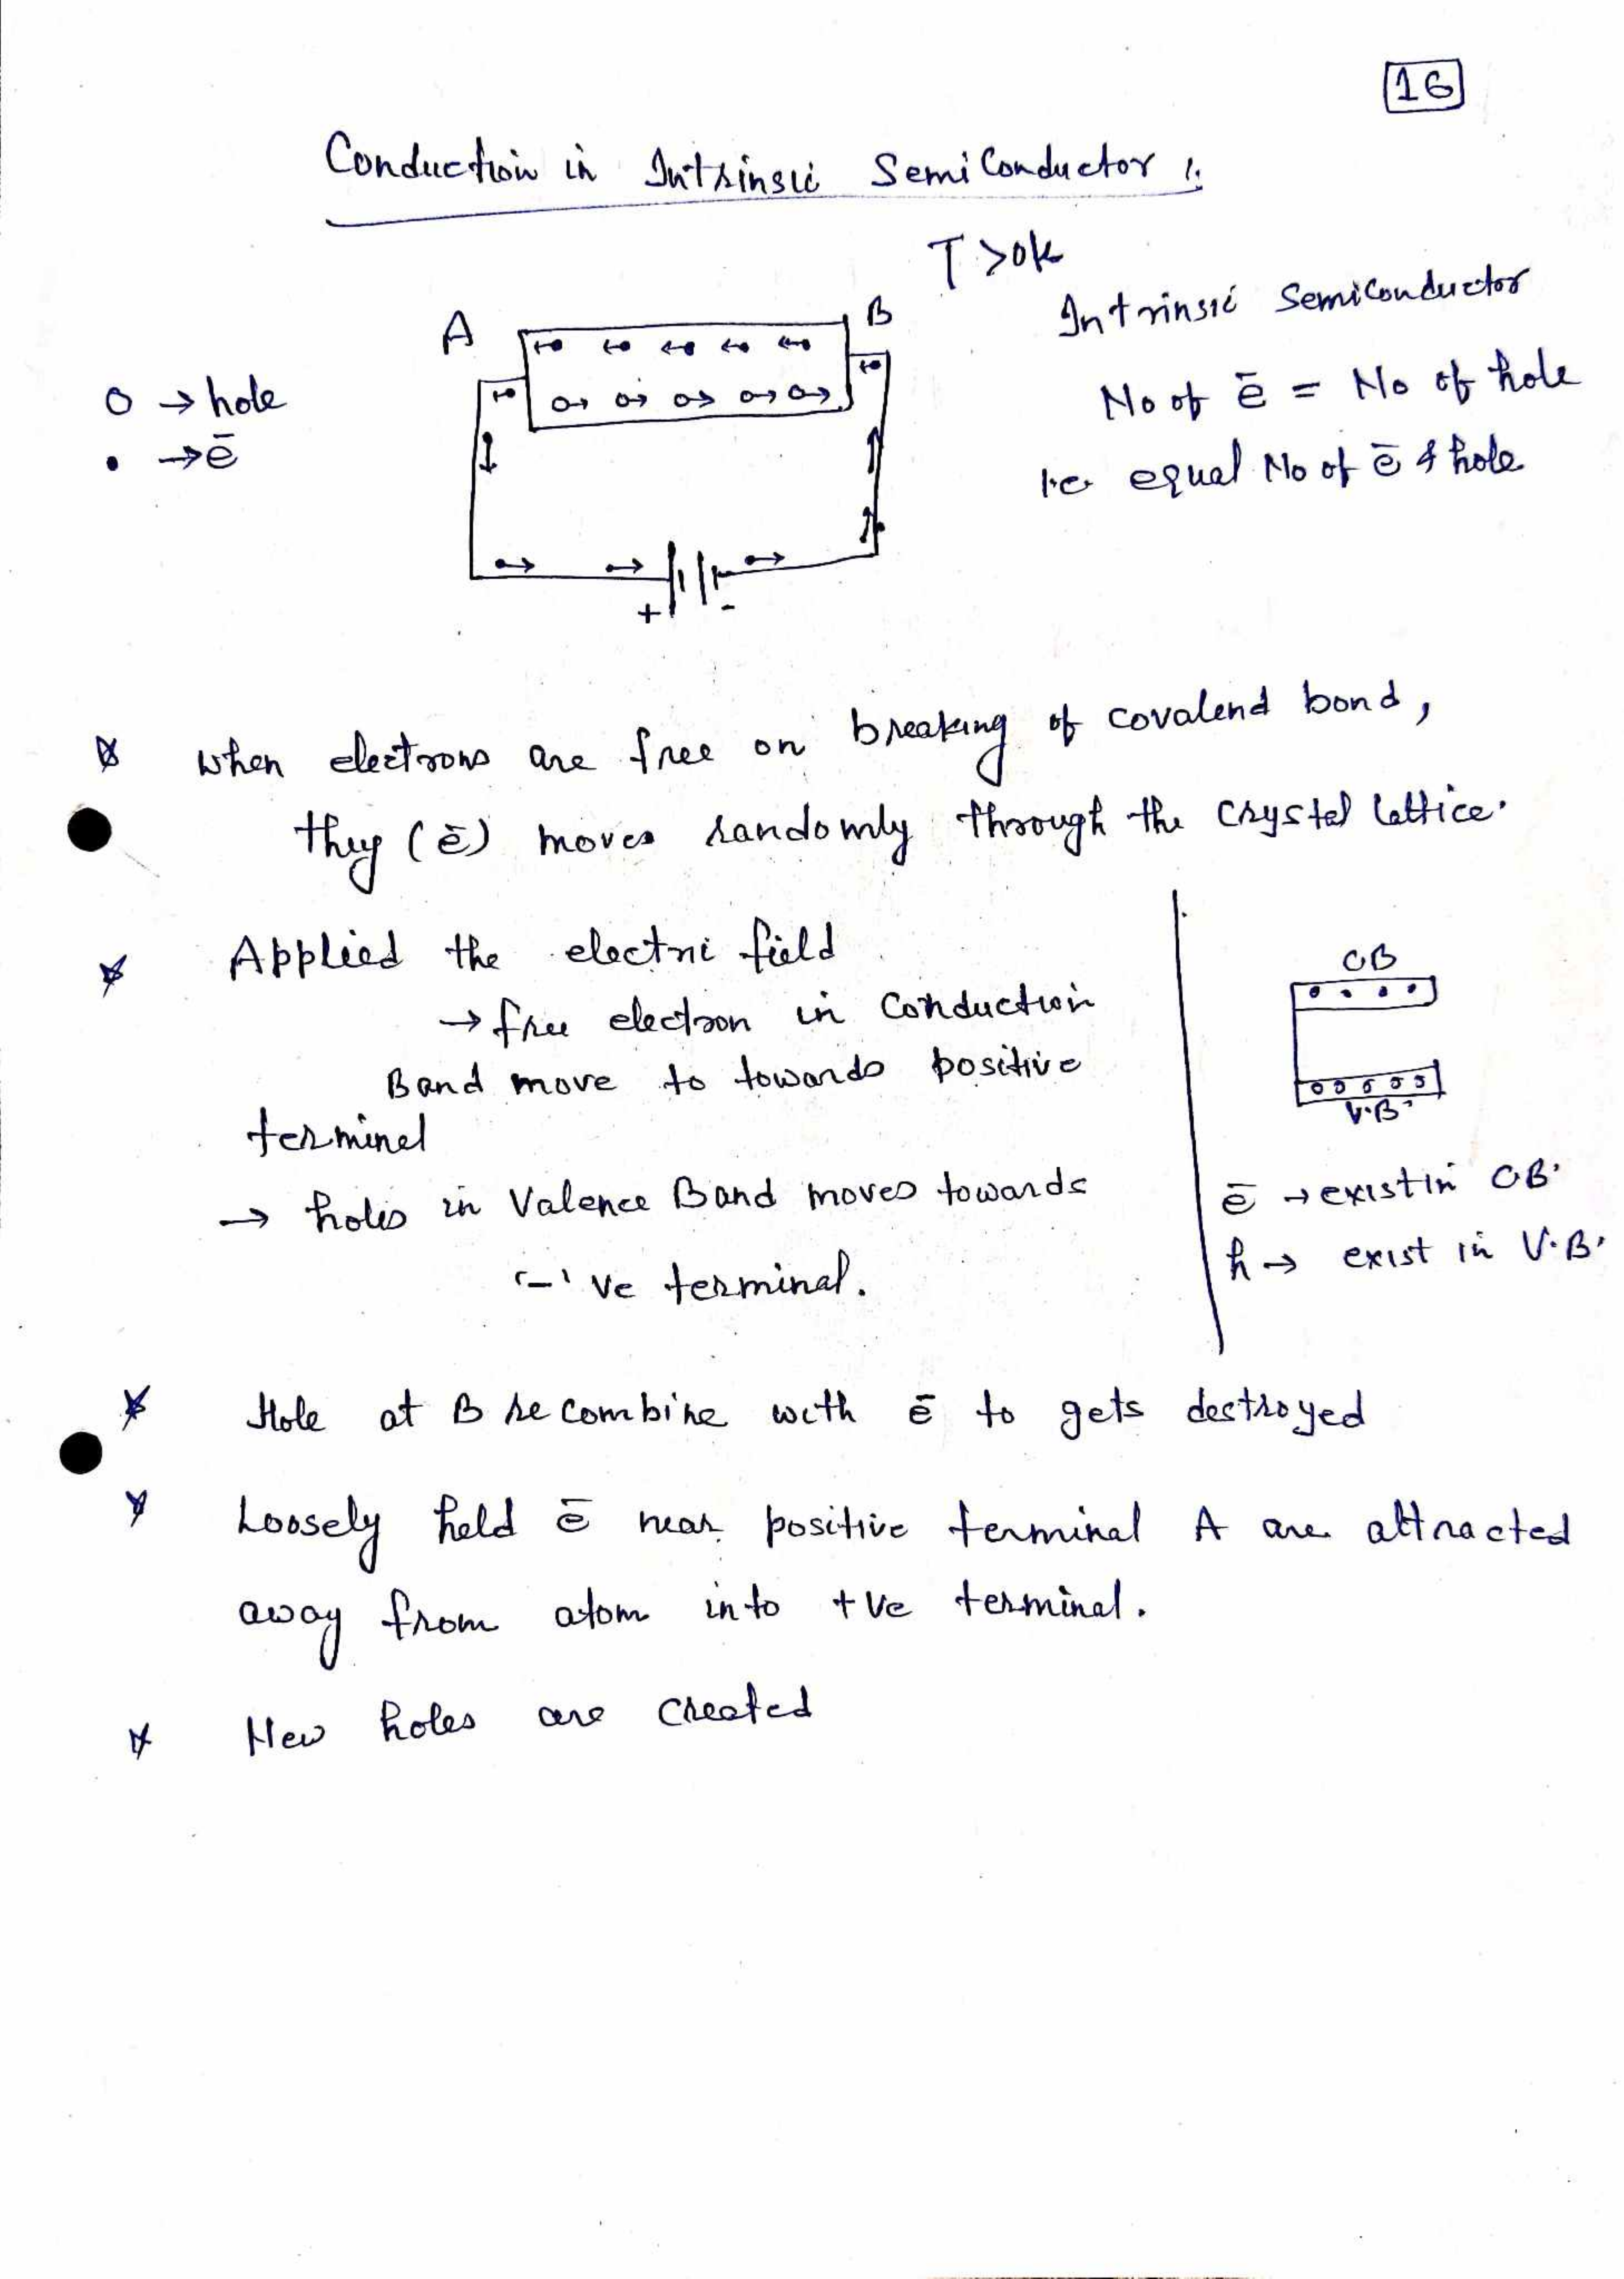 16
Conduction in Intrinsic Semi Conductor :
T > 0k
A
B
Intrinsic Semiconductor
o → hole
No of ē = No of hole
• → ē
i.e. equal No of ē & hole
+ -
when electrons are free on breaking of covalend bond,
they (ē) moves randomly through the crystal lattice.
Applied the electri field
CB
→ free electron in Conduction
Band move to towards positive
V.B.
terminel
→ holes in Valence Band moves towards
ē → exist in CB.
'-' ve terminal.
h → exist in V.B.
Hole at B recombine with ē to gets destroyed
Loosely held ē near positive terminal A are attracted
away from atom into +ve terminal.
New holes are created